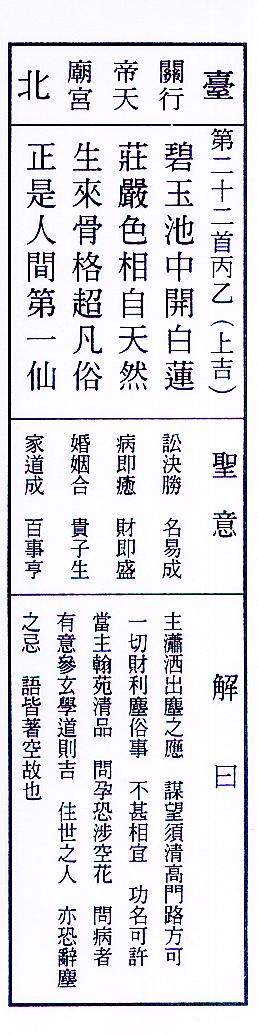 臺
關行
帝天
廟宮
北
第二十二首丙乙(上吉)
碧玉池中開白蓮
莊嚴色相自天然
生來骨格超凡俗
正是人間第一仙
聖意
訟決勝 名易成
病即癒 財即盛
婚姻合 貴子生
家道成 百事亨
解曰
主瀟洒出塵之應 謀望須清高門路方可
一切財利塵俗事 不甚相宜 功名可許
當主翰苑清品 問孕恐涉空花 問病者
有意參玄學道則吉 住世之人 亦恐辭塵
之忌 語皆著空故也